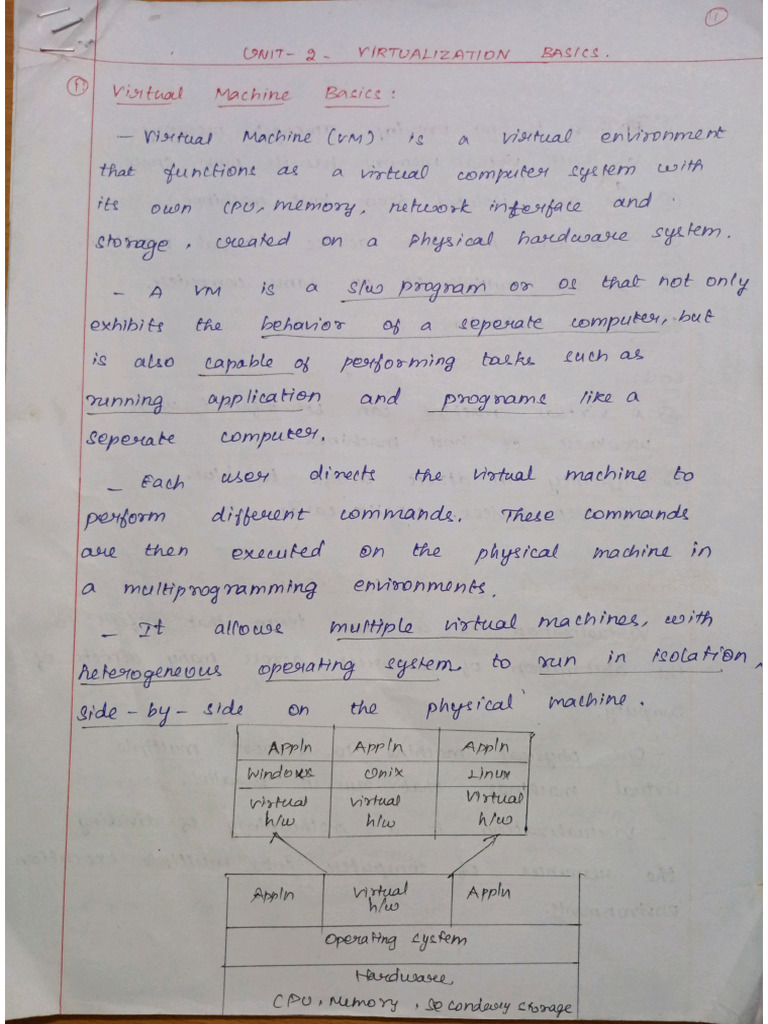 1
UNIT-2 - VIRTUALIZATION BASICS.
1) Virtual Machine Basics:
- Virtual Machine (VM) is a virtual environment
that functions as a virtual computer system with
its own CPU, memory, network interface and
storage, created on a physical hardware system.
- A VM is a s/w program or os that not only
exhibits the behavior of a seperate computer, but
is also capable of performing tasks such as
running application and programs like a
seperate computer.
- Each user directs the virtual machine to
perform different commands. These commands
are then executed on the physical machine in
a multiprogramming environments.
- It allows multiple virtual machines, with
heterogeneous operating system to run in isolation,
side-by-side on the physical machine.
Appln Appln Appln
Windows Unix Linux
virtual virtual Virtual
h/w h/w h/w
Appln Virtual Appln
h/w
Operating system
Hardware
CPU, Memory, secondary storage